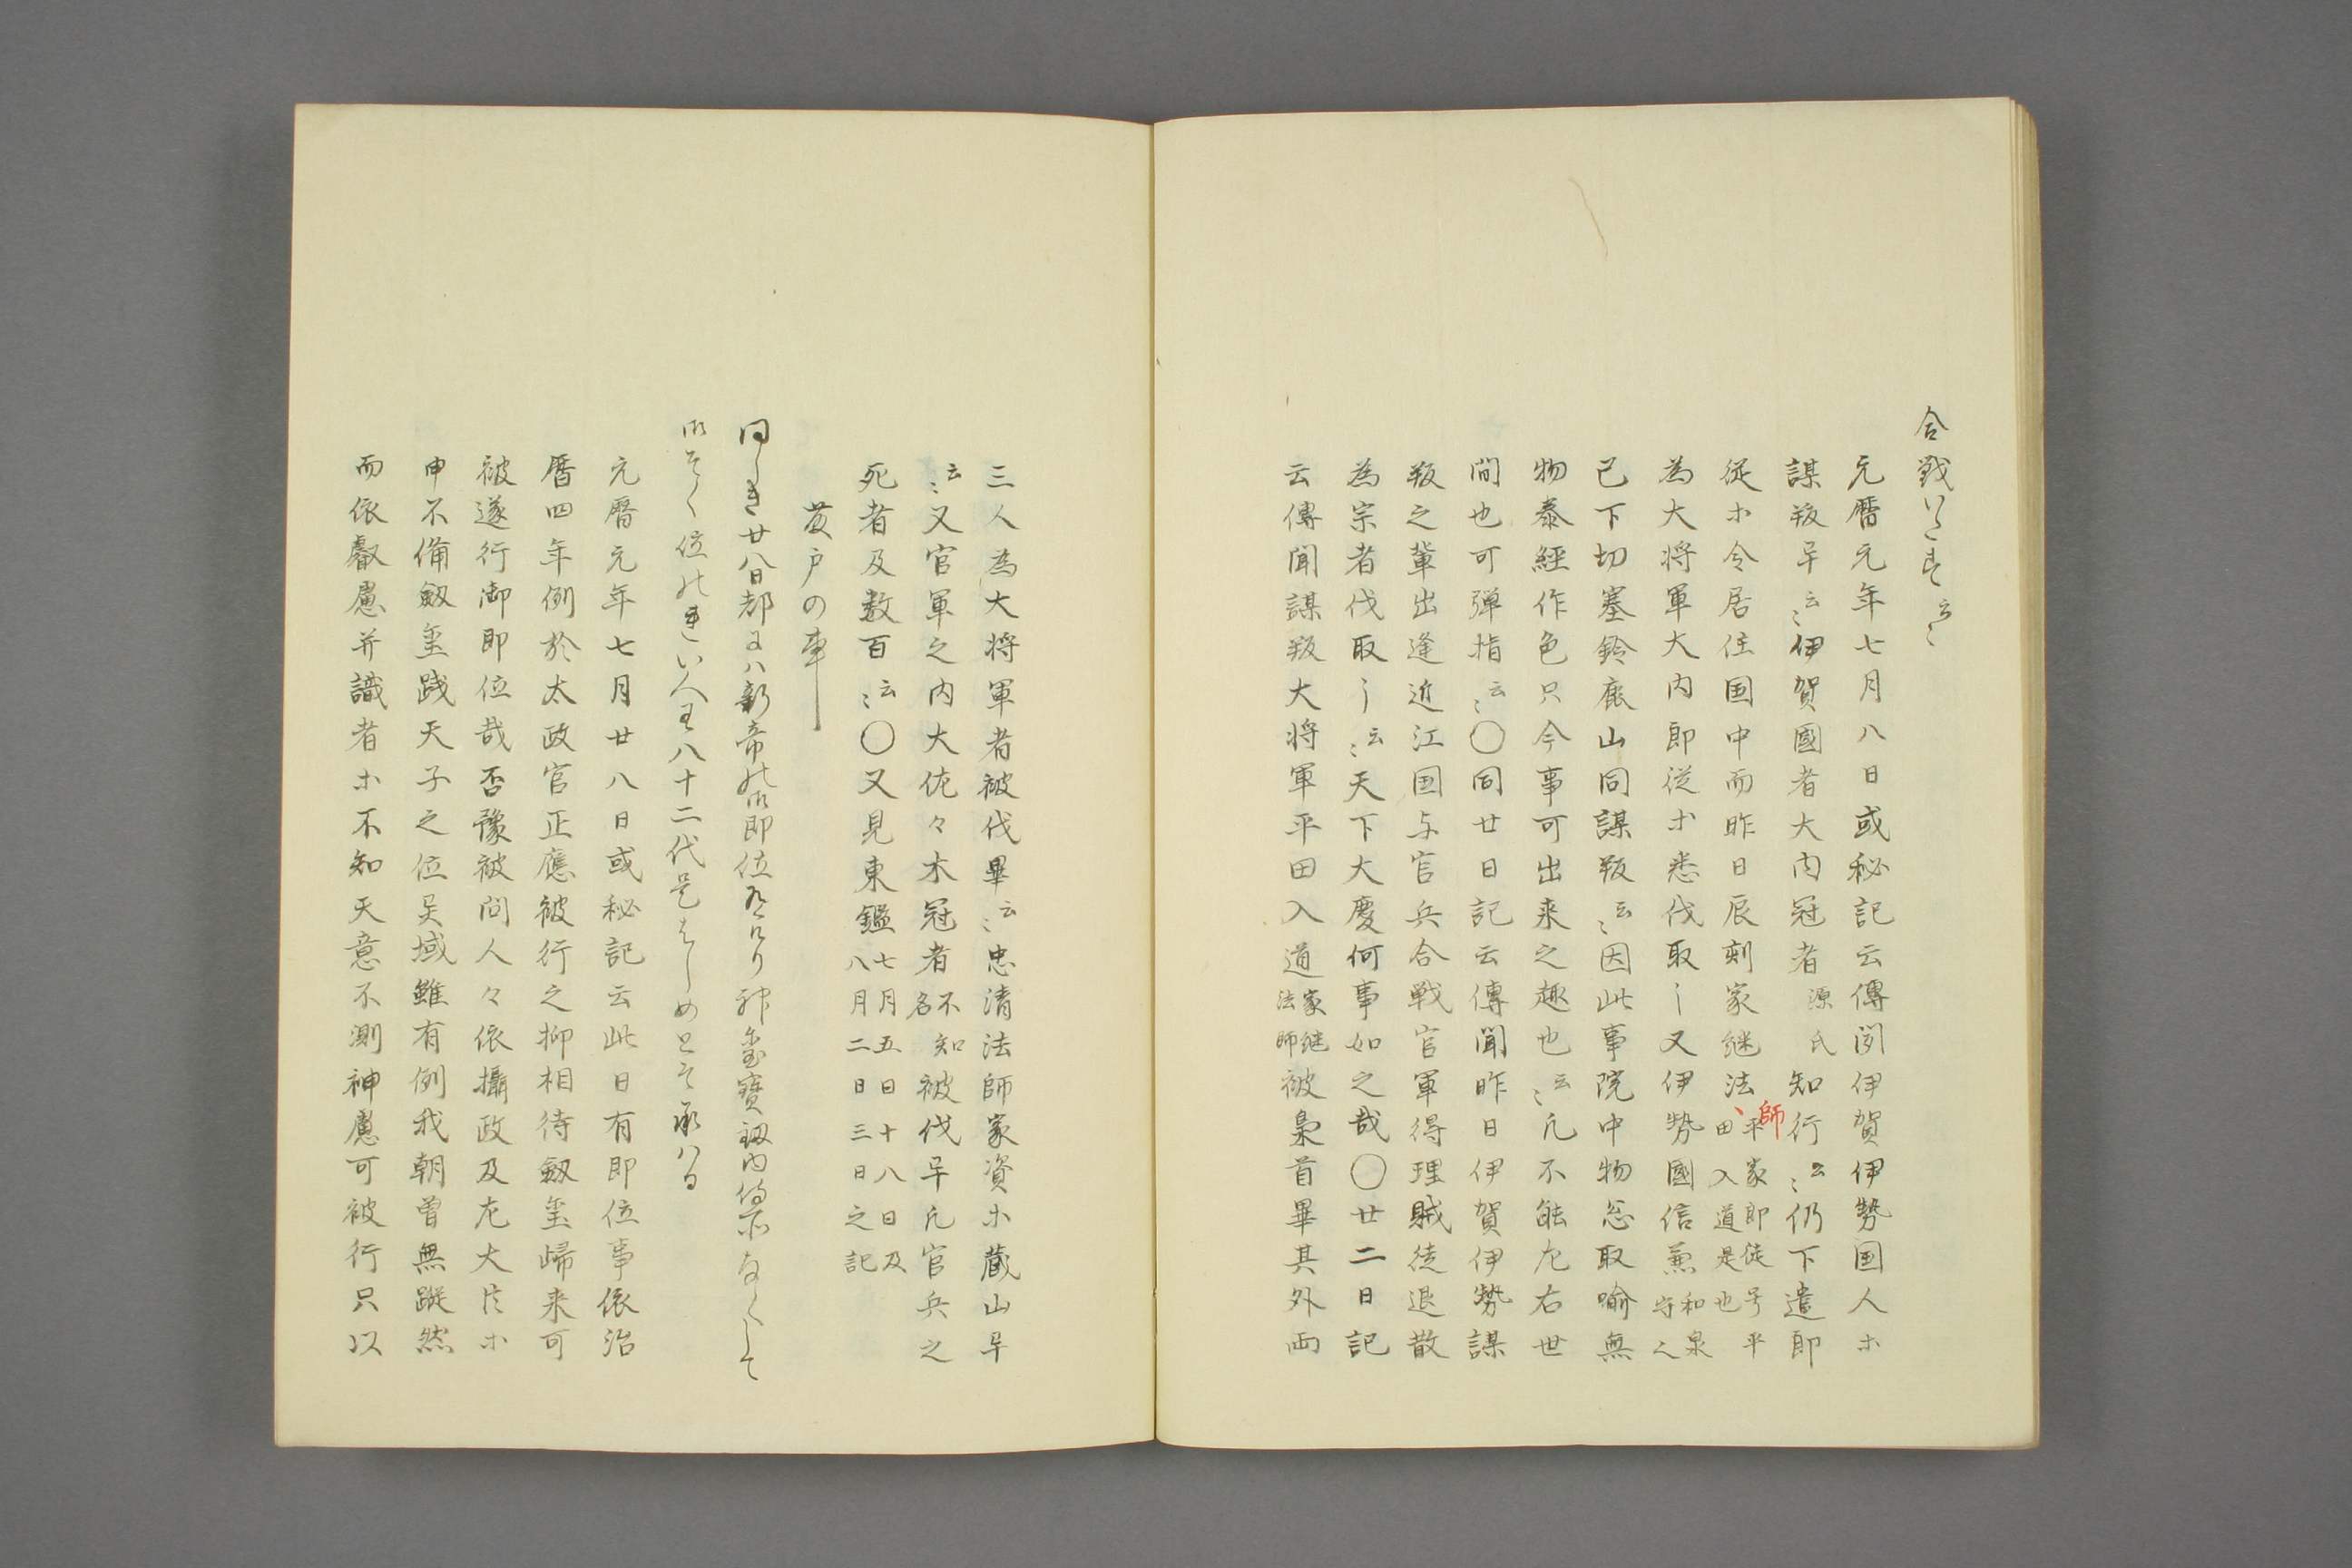 合戦いたす云〻
元暦元年七月八日或秘記云傳聞伊賀伊勢国人ホ
謀叛早云〻伊賀國者大内冠者源氏知行云〻仍下遣郎
従ホ令居住国中而昨日辰剋家継法師平家郎従号平田入道是也
為大将軍大内郎従ホ悉伐取了又伊勢國信兼和泉守之
已下切塞鈴鹿山同謀叛云〻因此事院中物忩取喻無
物泰経作色只今事可出来之趣也云〻凡不能左右世
間也可弾指云〻〇同廿日記云傳聞昨日伊賀伊勢謀
叛之輩出逢近江国与官兵合戦官軍得理賊徒退散
為宗者伐取了云〻天下大慶何事如之哉〇廿二日記
云傳聞謀叛大将軍平田入道家継法師被梟首畢其外両
三人為大将軍者被伐畢云〻忠清法師家資ホ蔵山早
云〻又官軍之内大佐々木冠者不知名被伐早凡官兵之
死者及数百云〻〇又見東鑑七月五日十八日及八月二日三日之記
藤戸の事
同しき廿八日都には新帝の御即位ありけり神璽寳剱内侍所なくして
御そく位のれい人王八十二代是はしめとそ承はる
元暦元年七月廿八日或秘記云此日有即位事依治
暦四年例於太政官正廳被行之抑相待剱璽歸来可
被遂行御即位哉否豫被問人々依攝政及左大臣ホ
申不備剱璽踐天子之位異域雖有例我朝曽無蹤然
而依叡慮并識者ホ不知天意不測神慮可被行只以